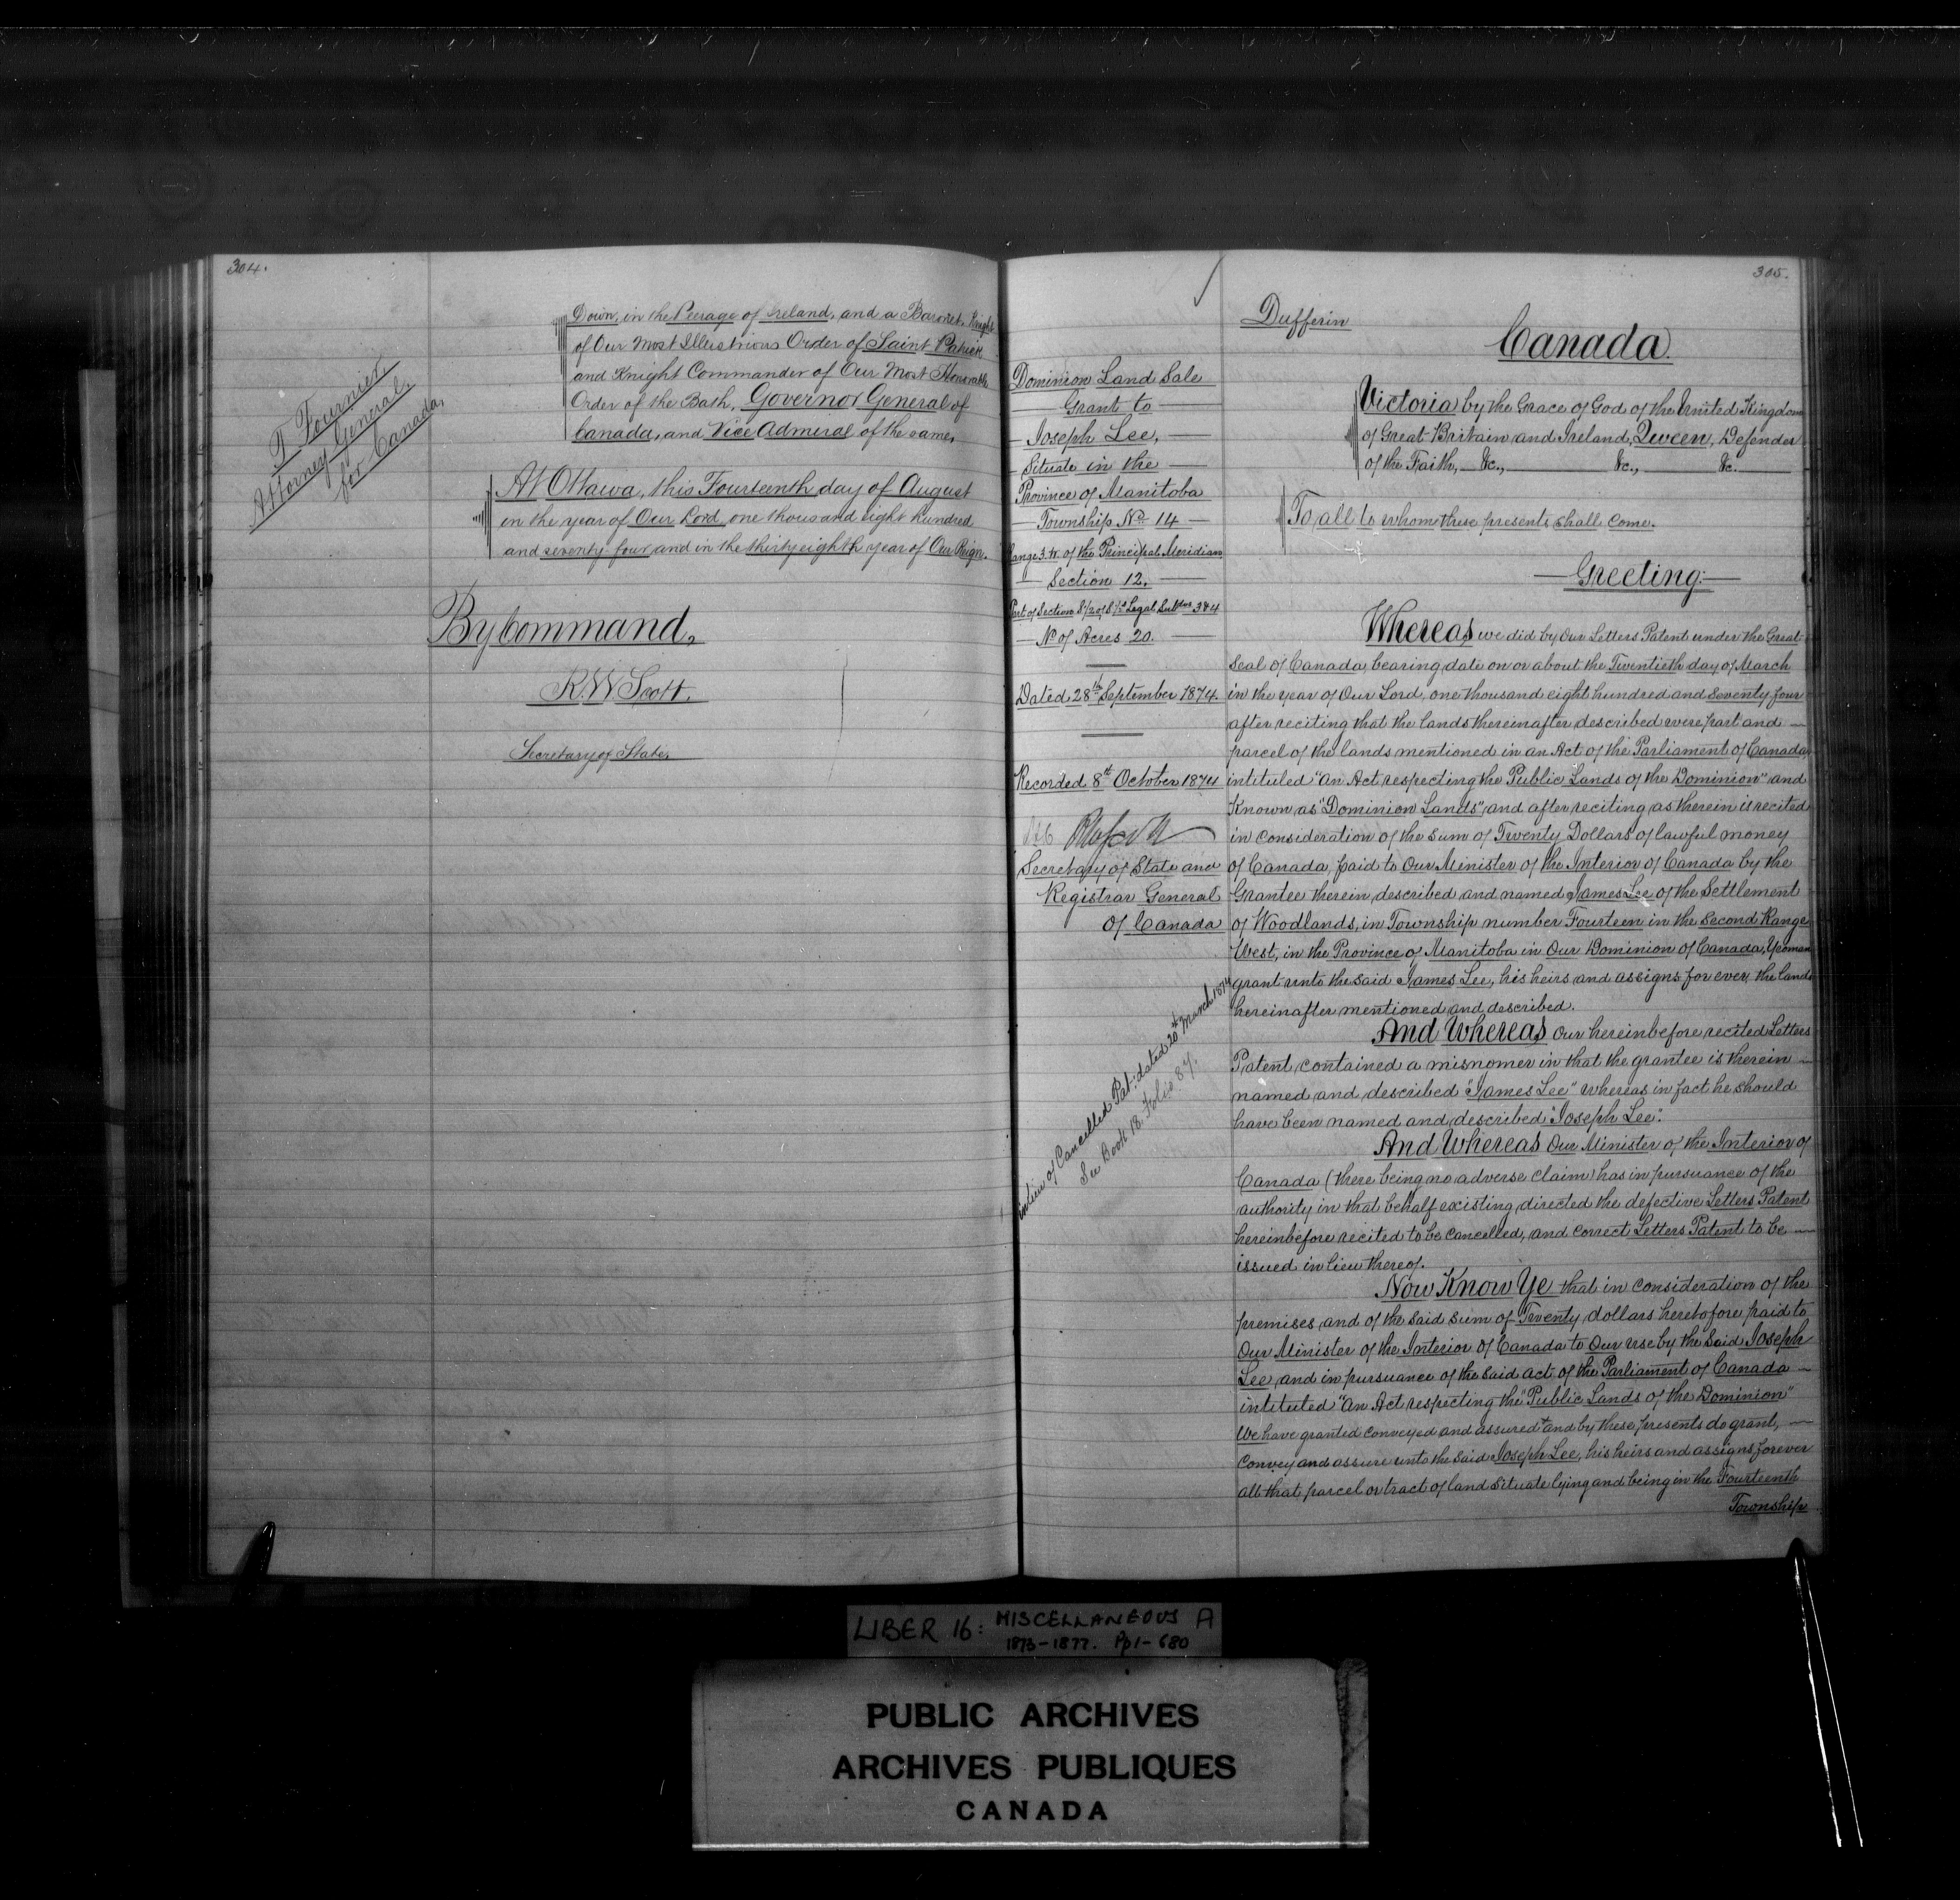 304.
T Fournier,
Attorney General,
for Canada,
Down, in the Peerage of Ireland, and a Baronet, Knight
of Our Most Illustrious Order of Saint Patrick
and Knight Commander of Our Most Honorable
Order of the Bath, Governor General of
Canada, and Vice Admiral of the same,
At Ottawa, this Fourteenth day of August
in the year of Our Lord one thousand eight hundred
and seventy four and in the thirty eighth year of Our Reign.
By Command,
R. W Scott.
Secretary of State.
305.
Dominion Land Sale
Grant to
Joseph Lee,
Situate in the
Province of Manitoba
Township No 14
Range 3. W. of the Principal Meridian
Section 12.
Part of Section S 1/2 of S 1/2 Legal Subdns 3 & 4
No of Acres 20.
Dated 28th September 1874.
Recorded 8th October 1874
Secretary of State and
Registrar General
of Canada
in lieu of Cancelled Pat: dated 20th March 1874
See Book 18. Folio 87.
Dufferin
Canada.
Victoria by the Grace of God of the United Kingdom
of Great Britain and Ireland, Queen, Defender
of the Faith, &c., &c., &c.
To all to whom these presents shall come.
Greeting:
Whereas we did by Our Letters Patent under the Great
Seal of Canada, bearing date on or about the Twentieth day of March
in the year of Our Lord, one thousand eight hundred and seventy four
after reciting that the lands thereinafter described were part and
parcel of the lands mentioned in an Act of the Parliament of Canada,
intituled "An Act respecting the Public Lands of the Dominion" and
Known as "Dominion Lands", and after reciting as therein is recited
in consideration of the sum of Twenty Dollars of lawful money
of Canada, paid to Our Minister of the Interior of Canada by the
Grantee therein described and named James Lee of the Settlement
of Woodlands, in Township number Fourteen in the Second Range
West, in the Province of Manitoba in Our Dominion of Canada, Yeoman
grant unto the said James Lee, his heirs and assigns for ever, the lands
hereinafter mentioned and described.
And Whereas Our hereinbefore recited Letters
Patent contained a misnomer in that the grantee is therein
named and described "James Lee" whereas in fact he should
have been named and described "Joseph Lee".
And Whereas Our Minister of the Interior of
Canada (there being no adverse claim) has in pursuance of the
authority in that behalf existing, directed the defective Letters Patent
hereinbefore recited to be cancelled, and correct Letters Patent to be
issued in lieu thereof.
Now Know Ye that in consideration of the
premises, and of the said sum of Twenty dollars heretofore paid to
Our Minister of the Interior of Canada to Our use by the said Joseph
Lee, and in pursuance of the said act of the Parliament of Canada
intituted "An Act respecting the "Public Lands of the Dominion"
We have granted conveyed and assured and by these presents do grant,
convey and assure unto the said Joseph Lee, his heirs and assigns forever
all that parcel or tract of land situate lying and being in the Fourteenth
Township
LIBER 16: MISCELLANEOUS A
1873-1877. Pp 1-680
PUBLIC ARCHIVES
ARCHIVES PUBLIQUES
CANADA